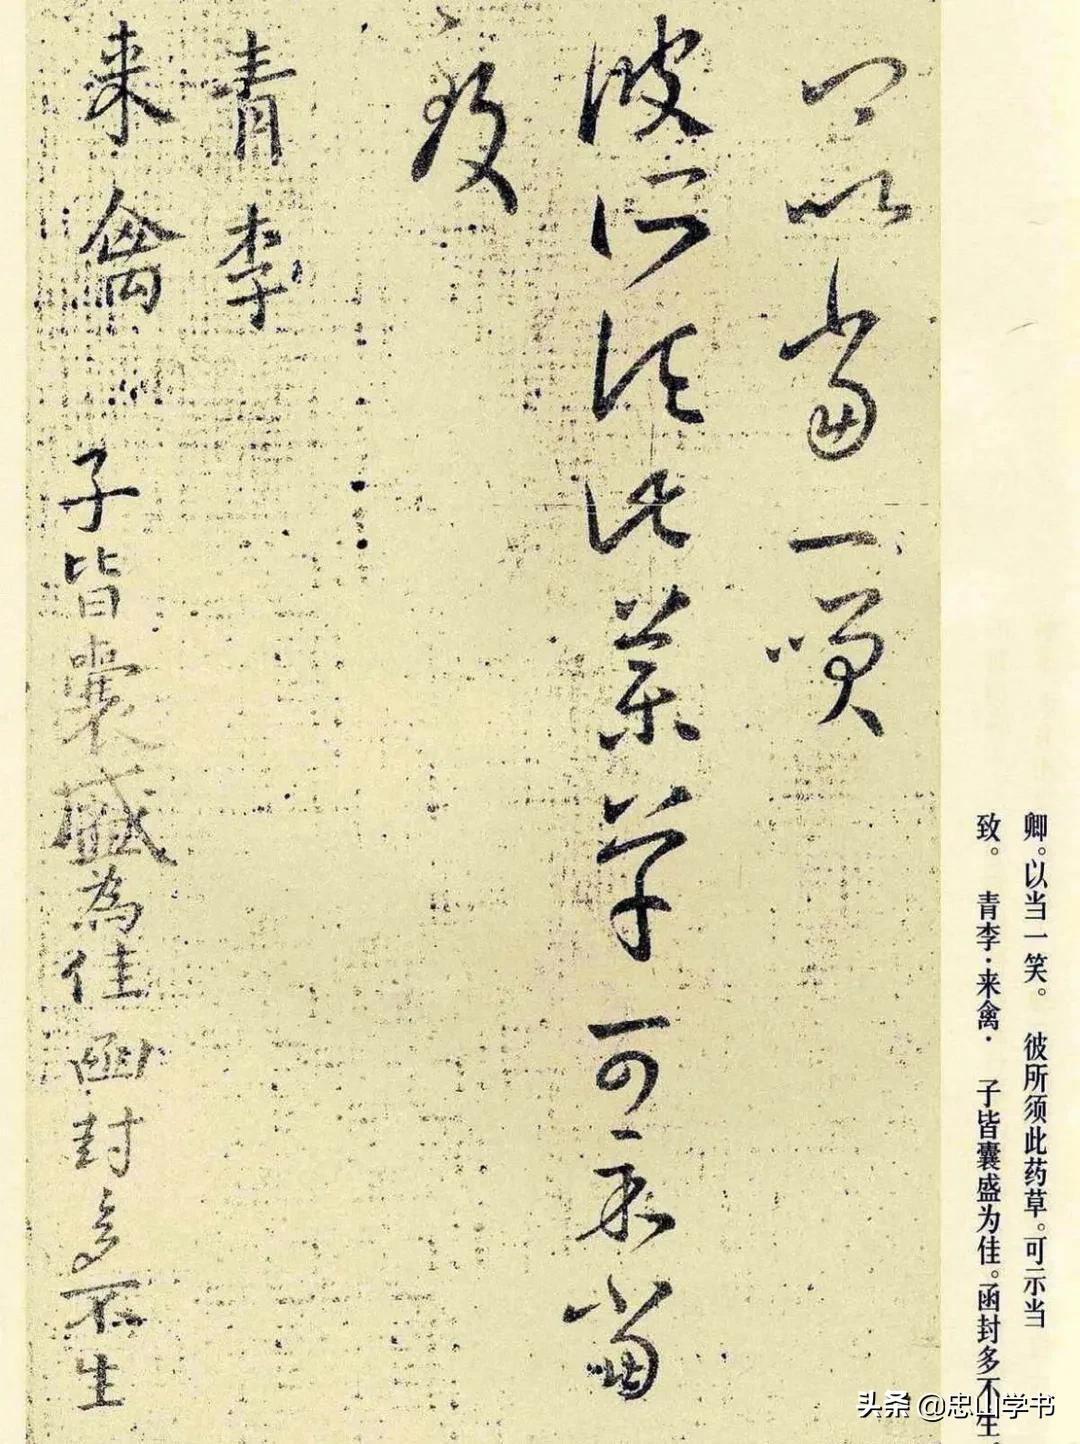 卿。以当一笑。　彼所须此药草。可示当
致。　青李·来禽·　子皆囊盛为佳。函封多不生
卿以當一咲
彼所須此藥草可示當
致
青李
来禽　子皆囊盛為佳函封多不生
头条 @忠山学书